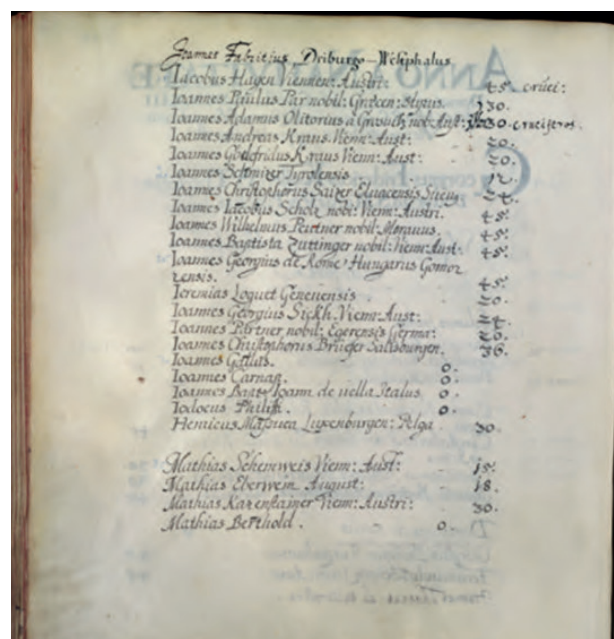 Joannes Fabritius Driburgo-Westphalus
Iacobus Hagen Viennen: Austri: 45. cruci:
Ioannes Paulus Pär nobil: Græcen: Styrus. 30.
Ioannes Adamus Olitorius à nob: Aust: 30. cruciferos.
Ioannes Andreas Kraus. Vienn: Aust: 20.
Ioannes Godefridus Kraus Vienn: Aust: 20.
Ioannes Tyrolensis 12.
Ioannes Christophorus Saizer 24.
Ioannes Iacobus Scholz nobi: Vienn: Austri. 45.
Ioannes Wilhelmus Peirtner nobil: Moravus. 45.
Ioannes Baptista Zuttinger nobil: Vienn: Aust: 45.
Ioannes Georgius de Rome Hungarus Gomor
zensis. 45.
Ieremias Loquet Geneuensis 20.
Ioannes Georgius Sickh. Vienn: Aust: 24.
Ioannes Pärtner nobil: Egerensis Germa: 20.
Ioannes Christophorus Salisburgen. 36.
Ioannes Gallus. 0.
Ioannes 0.
Ioannes Ioann de uella Italus 0.
Iodocus 0.
Henricus Luxenburgen: Belga 30.
Mathias Schemweis Vienn: Aust: 15.
Mathias Eberwein August: 18.
Mathias Kazenstainer Vienn: Austri: 30.
Mathias Berthold. 0.